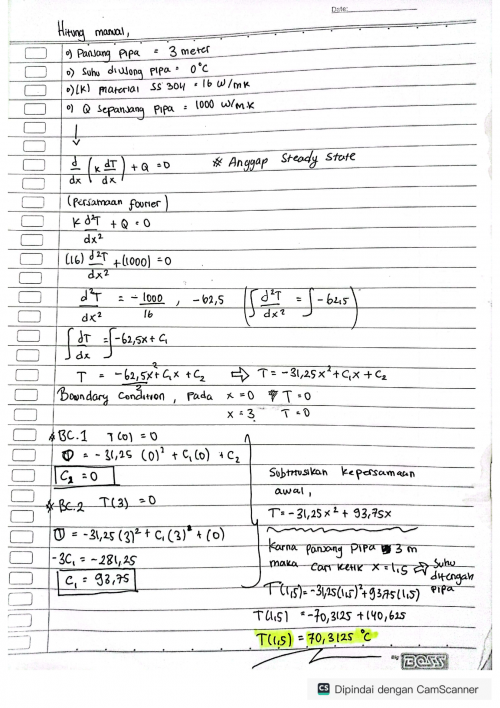 Date:
Hitung manual,
o) Panjang Pipa = 3 meter
o) Suhu diujung pipa = 0°C
o) (K) material SS 304 = 16 W/mK
o) Q sepanjang pipa = 1000 W/m.K
↓
d/dx (k dT/dx) + Q = 0 * Anggap Steady State
(Persamaan Fourier)
K d²T/dx² + Q = 0
(16) d²T/dx² + (1000) = 0
d²T/dx² = -1000/16 , -62,5 (∫ d²T/dx² = ∫ -62,5)
∫ dT/dx = ∫ -62,5x + C₁
T = -62,5x²/2 + C₁x + C₂ ⇒ T = -31,25x² + C₁x + C₂
Boundary Condition, Pada x = 0 T = 0
x = 3 T = 0
* BC.1 T(0) = 0
0 = -31,25 (0)² + C₁(0) + C₂
C₂ = 0
* BC.2 T(3) = 0
0 = -31,25(3)² + C₁(3) + (0)
-3C₁ = -281,25
C₁ = 93,75
Subtitusikan kepersamaan
awal,
T = -31,25x² + 93,75x
Karna panjang pipa 3 m
maka cari ketik x = 1,5 ⇒ Suhu
ditengah
pipa
T(1,5) = -31,25(1,5)² + 93,75(1,5)
T(1,5) = -70,3125 + 140,625
T(1,5) = 70,3125 °C
BOSS
CS Dipindai dengan CamScanner